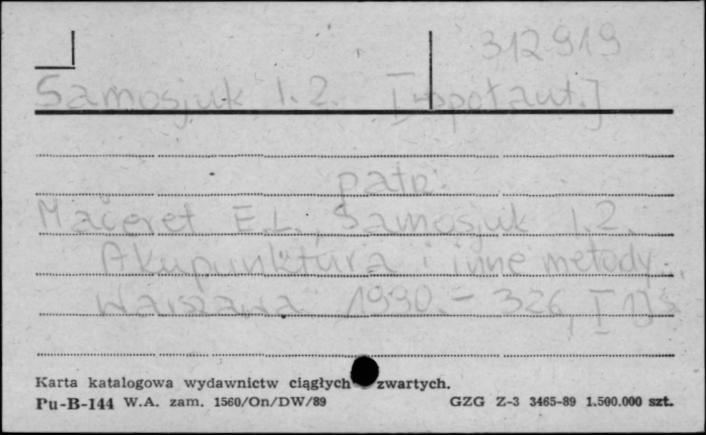 312919
Samosjuk I. Z. [współaut.]
patrz:
Maceret E.L., Samosjuk I.Z.
Akupunktura i inne metody..
Warszawa 1990. – 326, [1] s
Karta katalogowa wydawnictw ciągłych zwartych.
Pu-B-144 W.A. zam. 1560/On/DW/89 GZG Z-3 3465-89 1.500.000 szt.